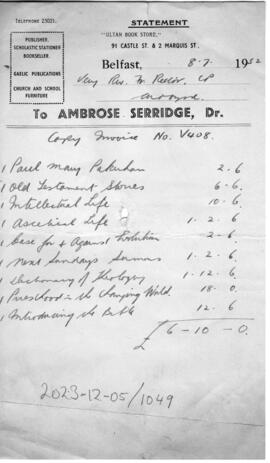 TELEPHONE 25021.
STATEMENT
"ULTAN BOOK STORE,"
91 CASTLE ST. & 2 MARQUIS ST.
PUBLISHER.
SCHOLASTIC STATIONER
BOOKSELLER.
GAELIC PUBLICATIONS
CHURCH AND SCHOOL
FURNITURE
Belfast, 8-7. 1952
Very Rev. Fr. Rector, CP
Ardoyne.
To AMBROSE SERRIDGE, Dr.
Copy Invoice No. V408.
1 Paul Mary Pakenham 2-6
1 Old Testament Stories 6-6.
1 Intellectual Life 10-6
1 Ascetical Life 1-2-6
1 Case for & Against 2-6
1 Next Sundays Sermon 1-2-6
1 Dictionary of Theology 1-12-6
1 Priesthood in the Changing World. 18-0
1 Introducing the Bible 12-6
£6-10-0.
2023-12-05/1049